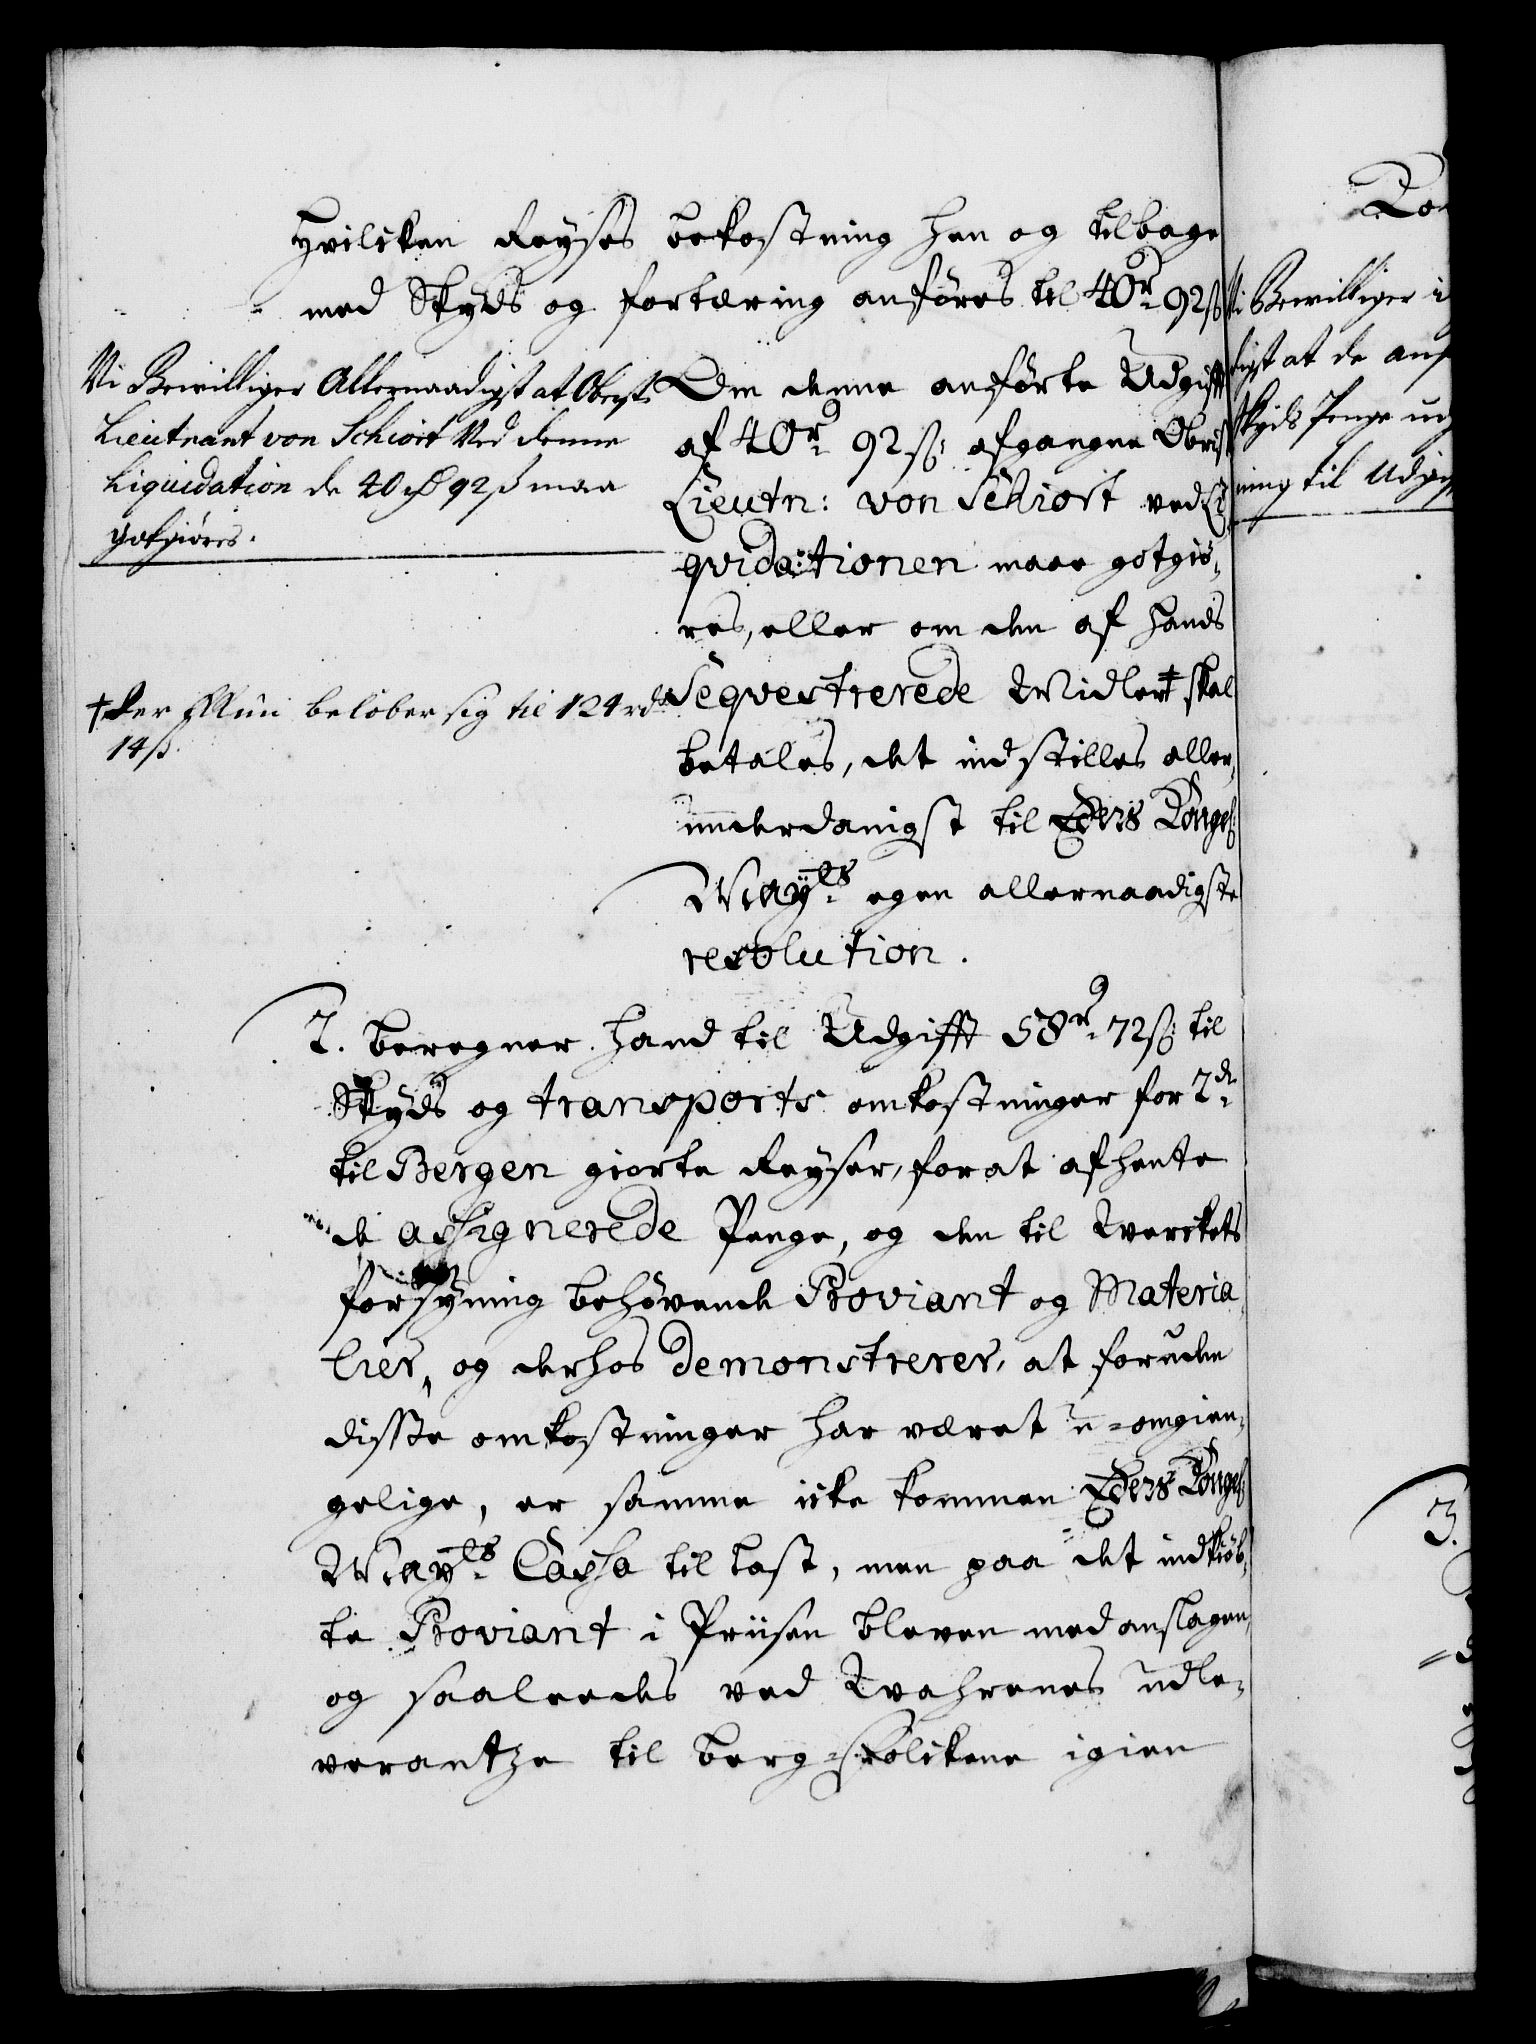 Hvilcken Reyses bekostning hen og tilbage
med Skyds og fortæring anføres til 40 rd 92 ß
Vi Bewilliger Allernaadigst at Oberst
Lieutnant von Schiort Ved denne
Liquidation de 40 rd 92 ß maa
godgiøres.
Om denne anførte Udgifft
af 40 rd 92 ß afgangne Obrist
Lieutn: von Schiort ved Li
qvidationen maae gotgiø-
res, eller om den af hands
Seqvestrerede Midler † skal
betales, det indstilles aller-
underdanigst til Eders Kongel:
May:ts egen allernaadigste
resolution.
† Der beløber sig til 124 rd
14 ß.
2. beregner hand til Udgifft 58 rd 72 ß til
Skyds og transports omkostninger for 2de
til Bergen giorte Reyser, for at afhente
de assignerede Penge, og den til Werckets
forsyning behøvende Proviant og Materia
lier, og derhos demonstrerer, at foruden
disse omkostninger har været u-omgien-
gelige, er samme icke kommen Eders Kongel:
May:ts Cassa til last, men paa det indkiøb-
te Proviant i Priisen bleven med anslagen,
og saaleedes ved Wahrenes udle-
verantze til berg-folckene igien
Vi Bewilliger
digst at de
Skyds Penge
ning til Udgift
3.